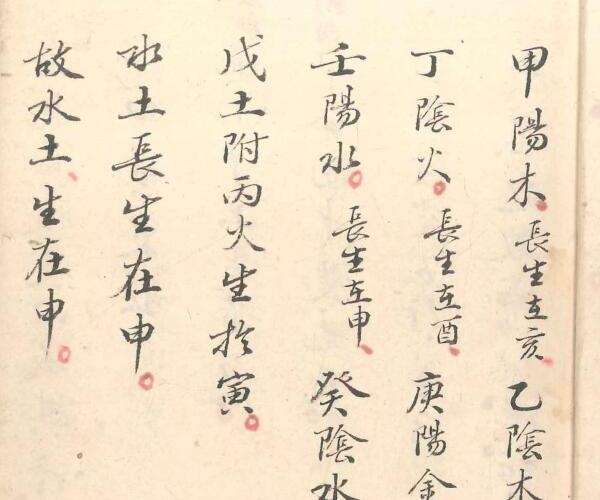 甲陽木。長生在亥、乙陰木
丁陰火。長生在酉、庚陽金
壬陽水。長生在申、癸陰水
戊土附丙火生於寅。
水土長生在申。
故水土、生在申。